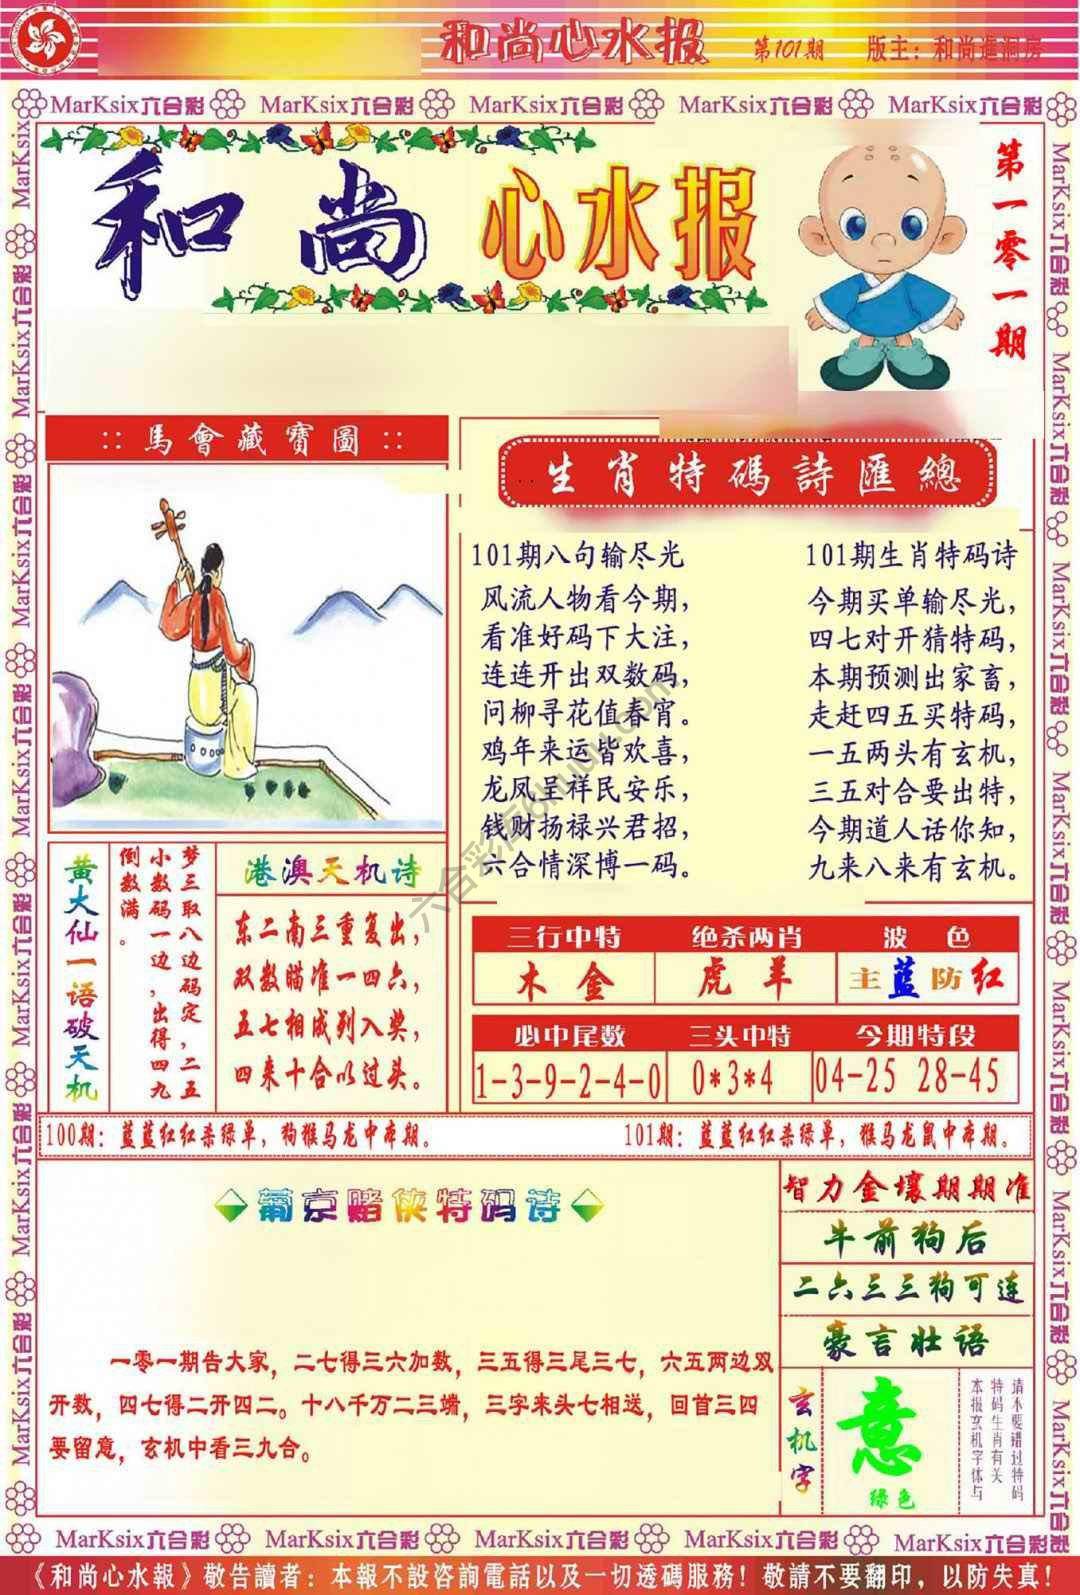 和尚心水报 第101期 版主：和尚進洞房
MarKsix六合彩 MarKsix六合彩 MarKsix六合彩 MarKsix六合彩 MarKsix六合彩
和尚心水报
第一零一期
::馬會藏寶圖::
生肖特碼詩匯總
101期八句输尽光
风流人物看今期，
看准好码下大注，
连连开出双数码，
问柳寻花值春宵。
鸡年来运皆欢喜，
龙凤呈祥民安乐，
钱财扬禄兴君招，
六合情深博一码。
101期生肖特码诗
今期买单输尽光，
四七对开猜特码，
本期预测出家畜，
走赶四五买特码，
一五两头有玄机，
三五对合要出特，
今期道人话你知，
九来八来有玄机。
黄大仙一语破天机
梦三取八边码定，二五
小数码一边，出得四九
倒数满。
港澳天机诗
东二南三重复出，
双数瞄准一四六，
五七相成列入奖，
四来十合以过头。
三行中特 绝杀两肖 波色
木金 虎羊 主蓝防红
必中尾数 三头中特 今期特段
1-3-9-2-4-0 0*3*4 04-25 28-45
100期：蓝蓝红红杀绿单，狗猴马龙中本期。 101期：蓝蓝红红杀绿单，猴马龙鼠中本期。
葡京赌侠特码诗
一零一期告大家，二七得三六加数，三五得三尾三七，六五两边双
开数，四七得二开四二。十八千万二三端，三字来头七相送，回首三四
要留意，玄机中看三九合。
智力金壤期期准
牛前狗后
二六三三狗可连
豪言壮语
玄机字
意
绿色
请不要错过特码
特码生肖有关
本报玄机字体与
六合彩库6huuu.com
MarKsix六合彩 MarKsix六合彩 MarKsix六合彩 MarKsix六合彩 MarKsix六合彩
《和尚心水報》敬告讀者：本報不設咨詢電話以及一切透碼服務！敬請不要翻印，以防失真！